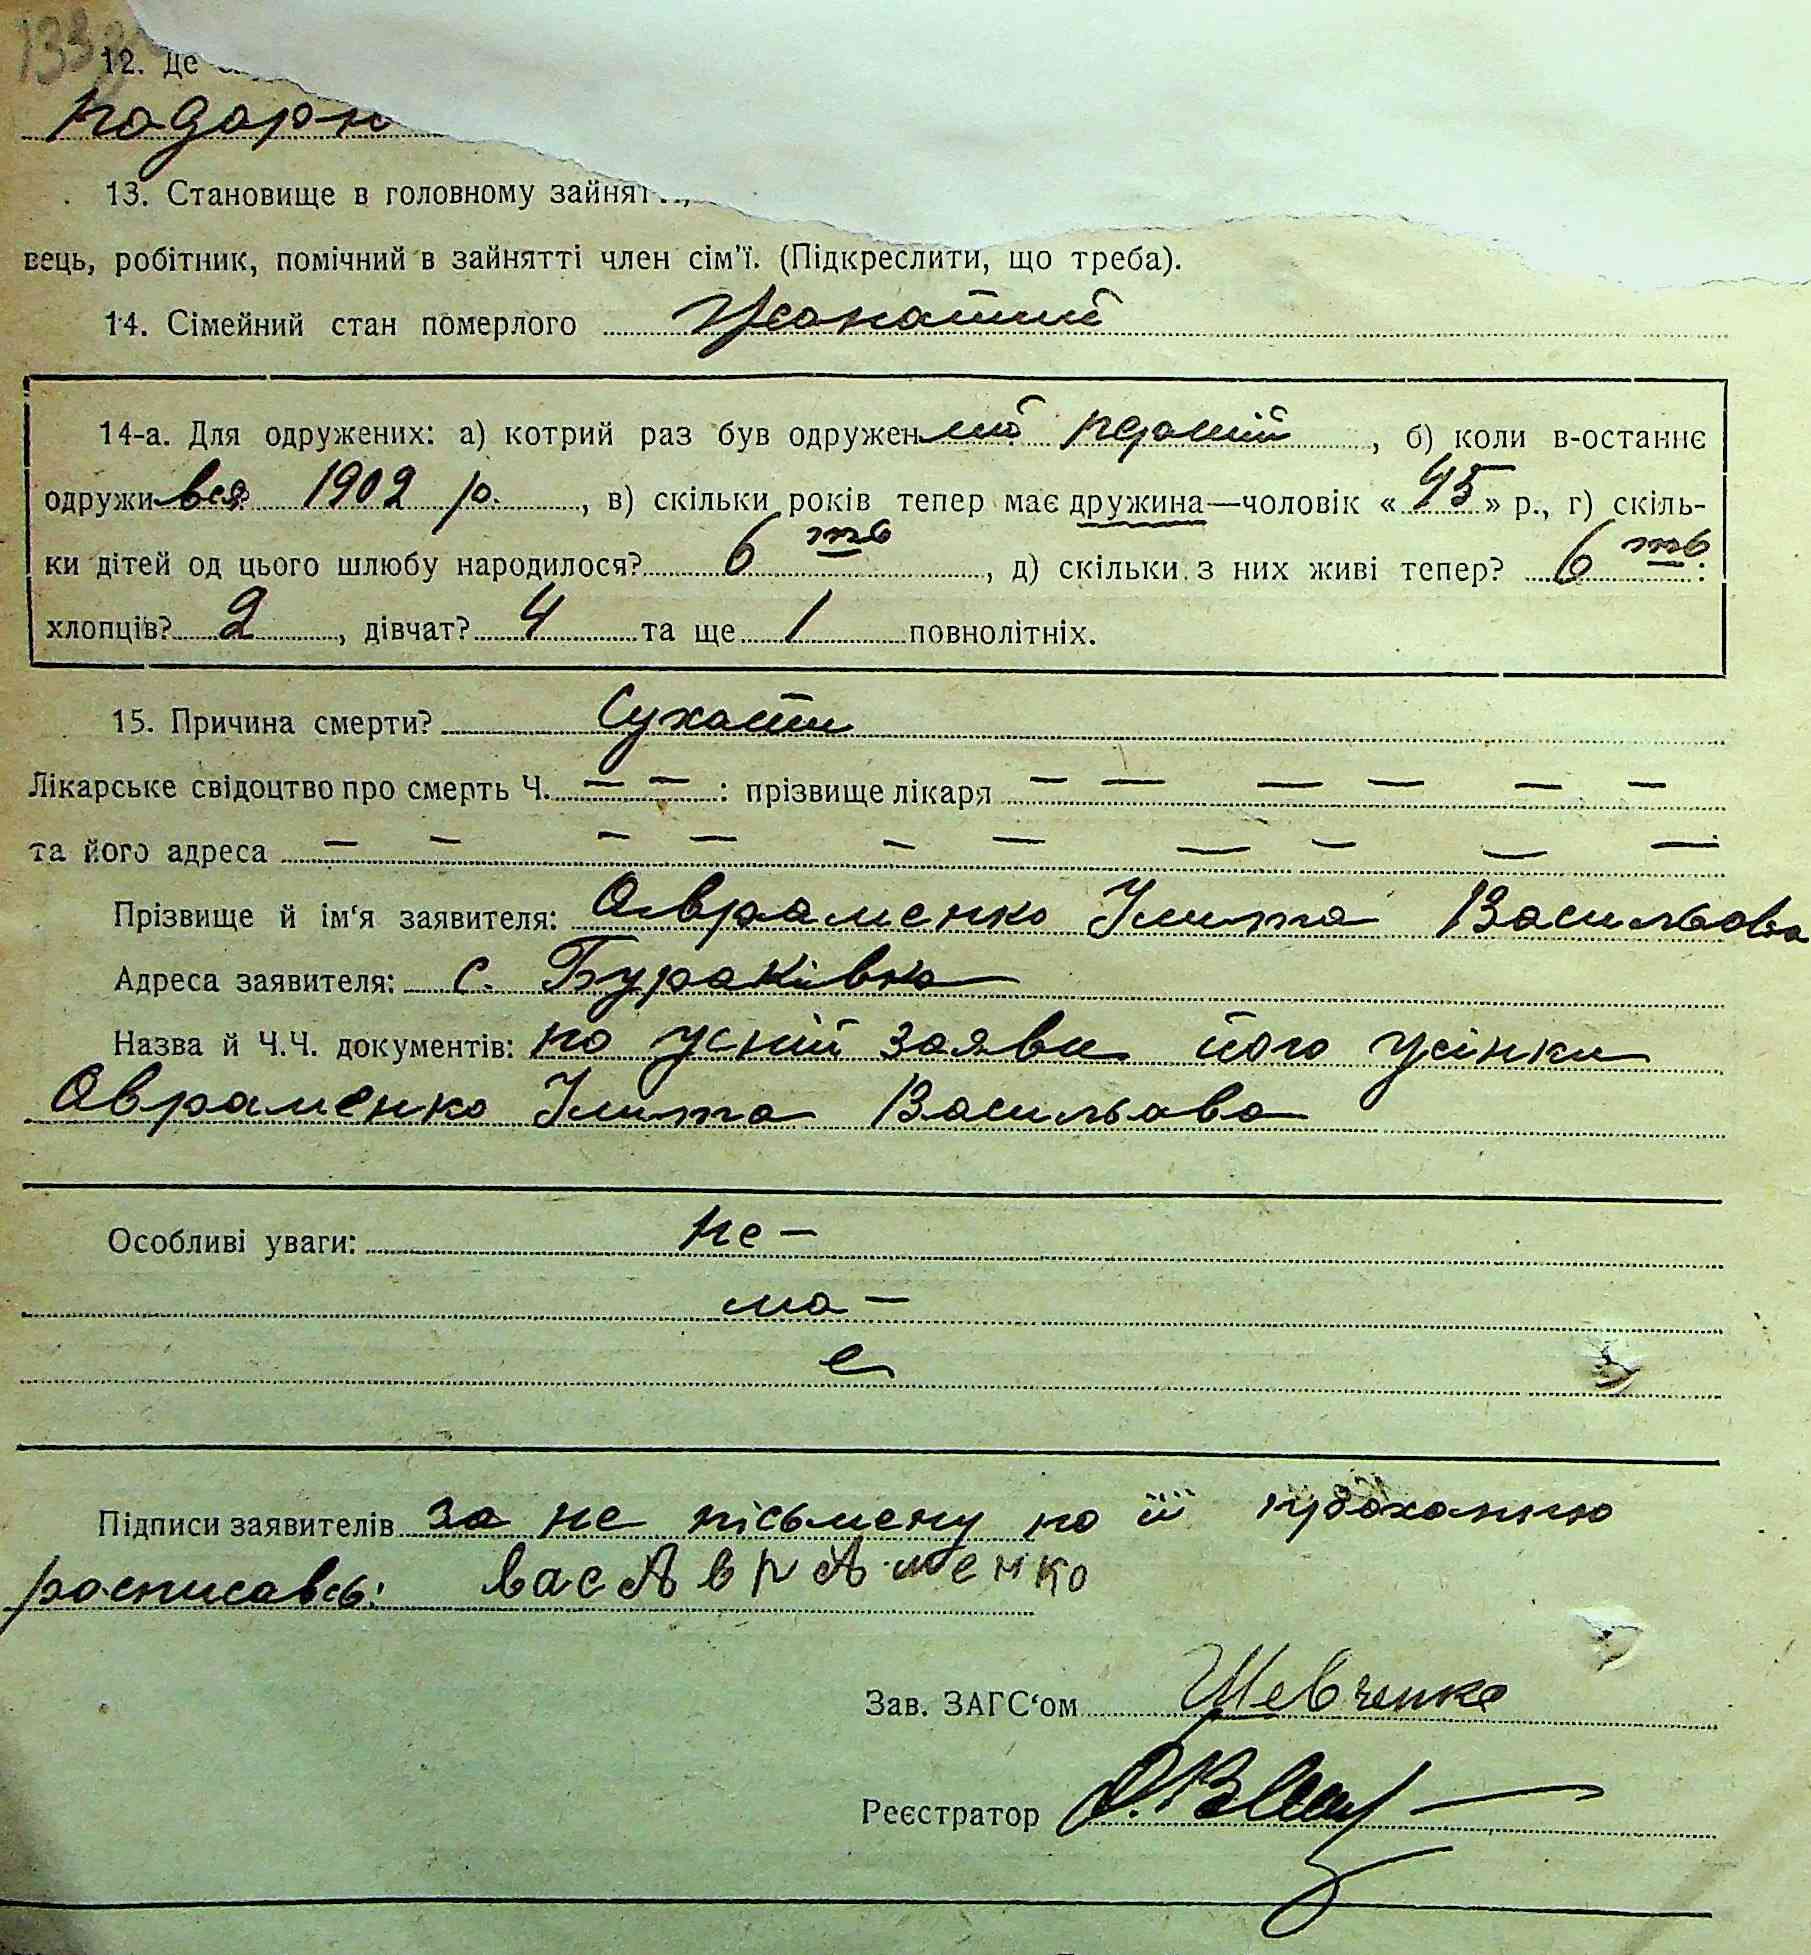 133
12. Де
13. Становище в головному зайнятті,
вець, робітник, помічний в зайнятті член сім'ї. (Підкреслити, що треба).
14. Сімейний стан померлого жонатий
14-а. Для одружених: а) котрий раз був одружений перший, б) коли в-останнє
одружився 1902 р., в) скільки років тепер має дружина—чоловік «45» р., г) скіль-
ки дітей од цього шлюбу народилося? 6 ть, д) скільки з них живі тепер? 6 ть:
хлопців? 2, дівчат? 4 та ще 1 повнолітніх.
15. Причина смерти? Сухати
Лікарське свідоцтво про смерть Ч. — — : прізвище лікаря — — — — — —
та його адреса — — — — — — — — — —
Прізвище й ім'я заявителя: Авраменко Улита Васильова
Адреса заявителя: с. Бураківка
Назва й Ч.Ч. документів: по усній заяви його жінки
Авраменко Улита Васильова
Особливі уваги: не —
ма —
є
Підписи заявителів за не письмену по її проханню
росписавсь: вас Авраменко
Зав. ЗАГС'ом Шевченко
Реєстратор